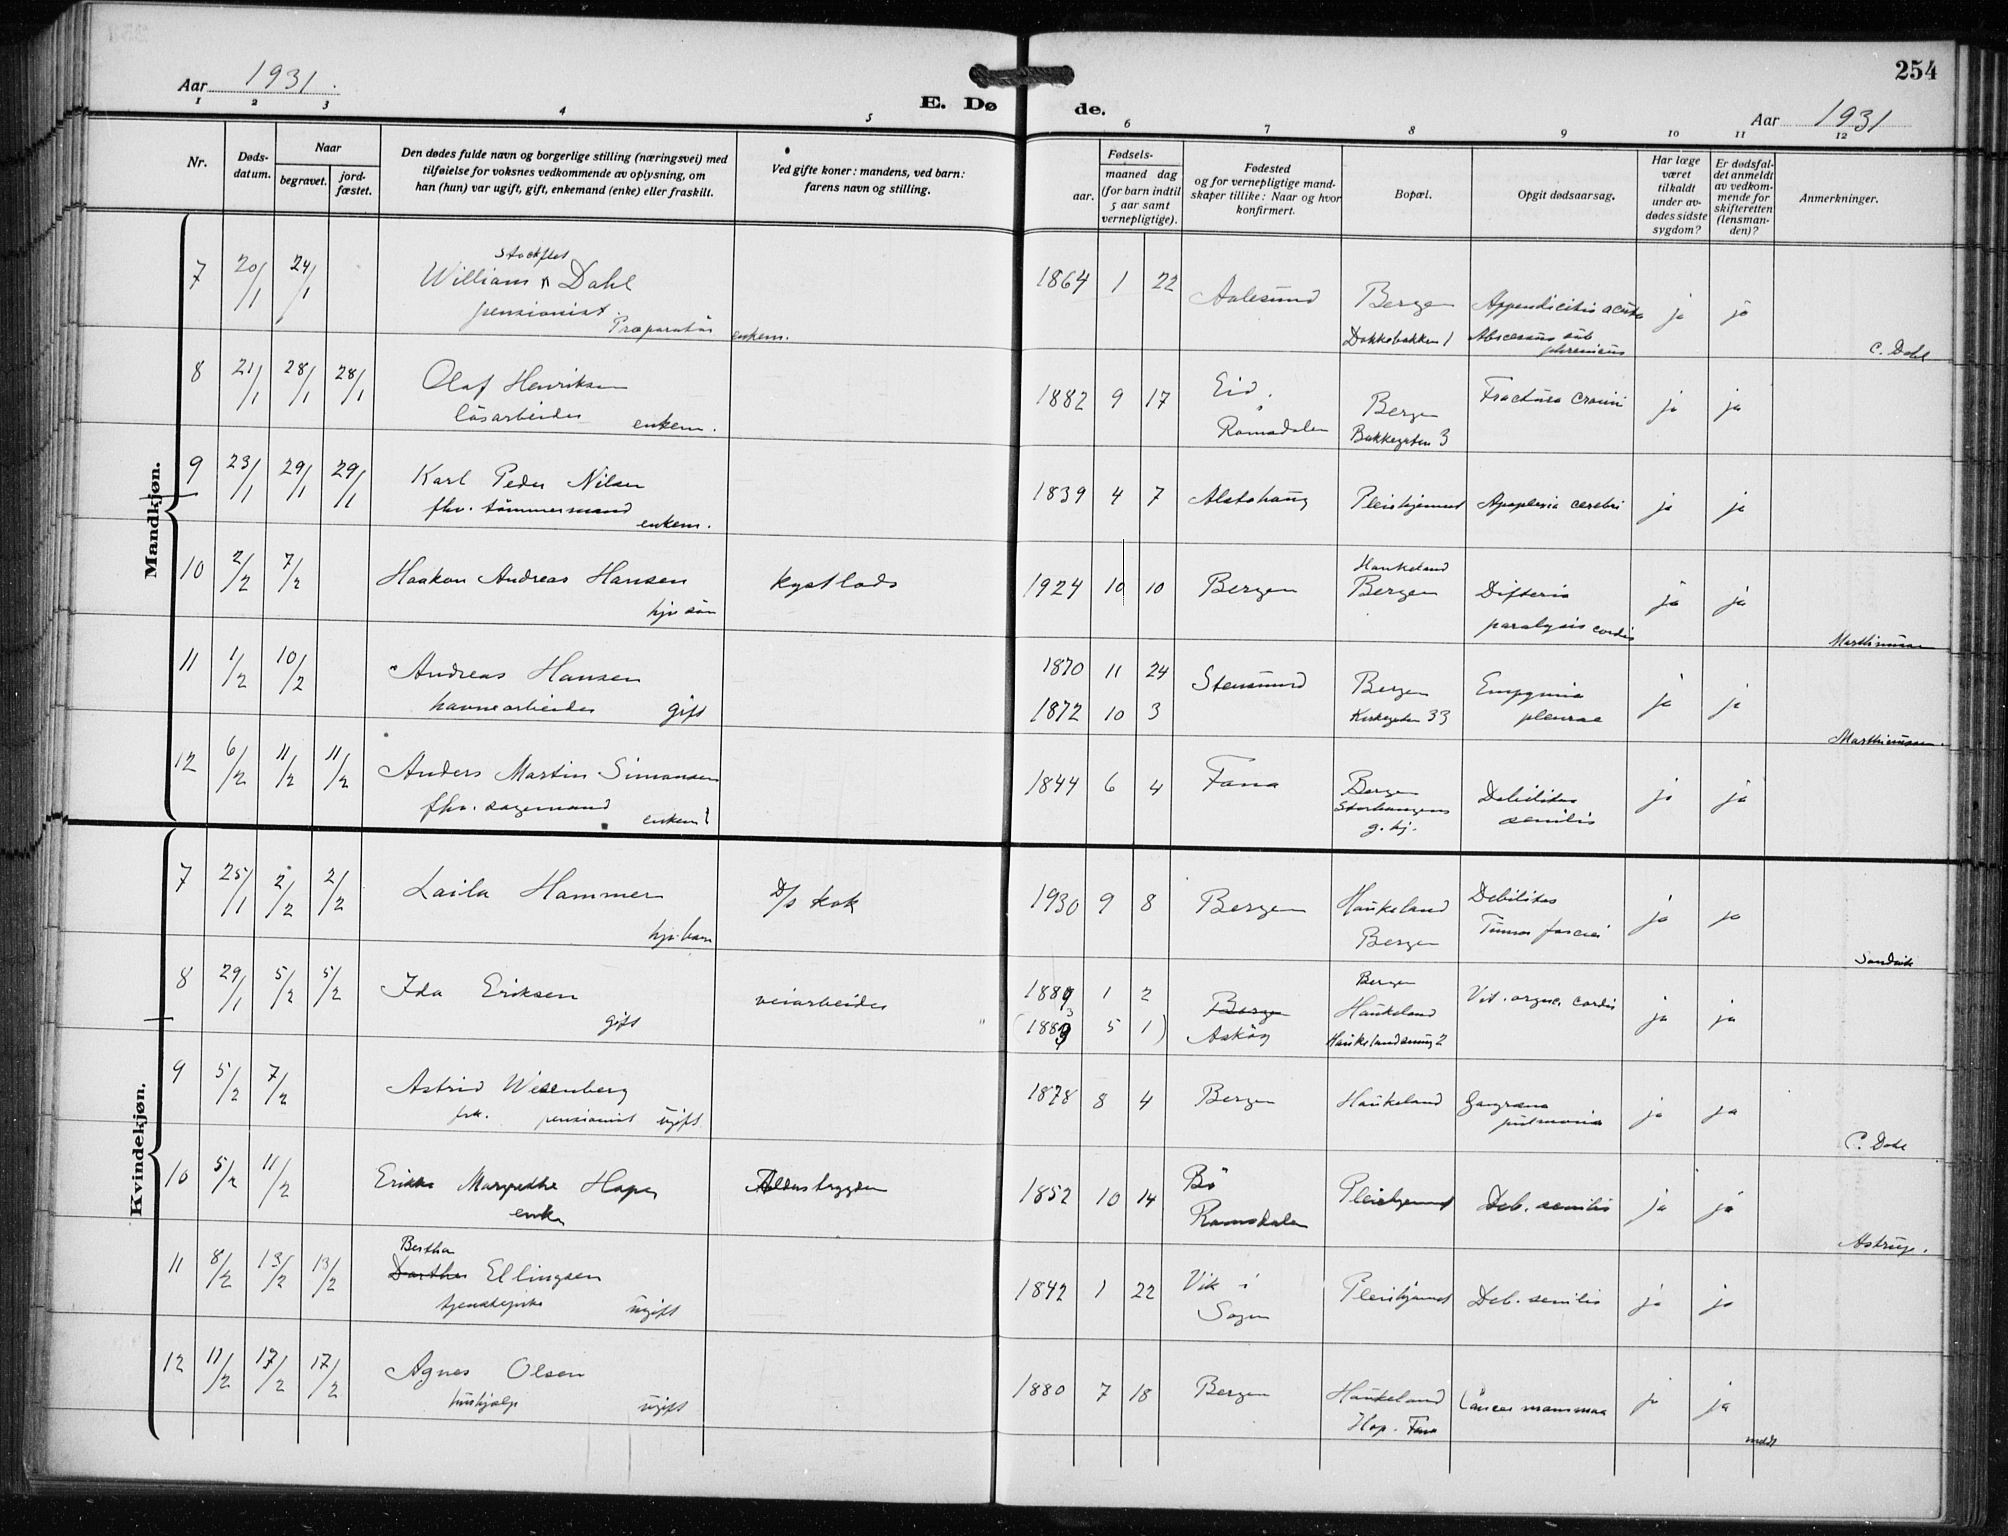 254
Aar 1931.
E. Dø de.
Aar 1931
1 2 3 4 5 6 7 8 9 10 11 12
Nr.
Døds-
datum.
Naar
begravet.
jord-
fæstet.
Den dødes fulde navn og borgerlige stilling (næringsvei) med
tilføielse for voksnes vedkommende av oplysning, om
han (hun) var ugift, gift, enkemand (enke) eller fraskilt.
Ved gifte koner: mandens, ved barn:
farens navn og stilling.
Fødsels-
aar.
maaned dag
(for barn indtil
5 aar samt
vernepligtige).
Fødested
og for vernepligtige mand-
skaper tillike: Naar og hvor
konfirmert.
Bopæl.
Opgit dødsaarsag.
Har læge
været
tilkaldt
under av-
dødes sidste
sygdom?
Er dødsfal-
det anmeldt
av vedkom-
mende for
skifteretten
(lensman-
den)?
Anmerkninger.
Mandkjøn.
7 20/1 24/1 Stockflet
William Dahl 1864 1 22 Aalesund Bergen Appendicitis acuta ja ja
pensionist
Præparatør enkem. Dokkebakken 1 Abscessus sub
phrenicus C. Dahl
8 21/1 28/1 28/1 Olaf Henriksen 1882 9 17 Eid, Bergen Fractura cranii ja ja
løsarbeider enkem. Romsdalen Bakkegaten 3
9 23/1 29/1 29/1 Karl Peder Nilsen 1839 4 7 Alstahaug Pleiehjemmet Apoplexia cerebri ja ja
fhv. tømmermand enkem.
10 2/2 7/2 Haakon Andreas Hansen kystlods 1924 10 10 Bergen Haukeland
Bergen Difteria ja ja
hjv søn paralysis cordis Marthinussen
11 1/2 10/2 Andreas Hansen 1870 11 24 Stensund Bergen Empyema ja ja
havnearbeider gift 1872 10 3 Kirkegaten 33 pleurae Marthinussen.
12 6/2 11/2 11/2 Anders Martin Simonsen 1844 6 4 Fana Bergen Debilitas ja ja
fhv. sagemand enkem. Storhaugens
g. hj. senilis
Kvindekjøn.
7 25/1 2/2 2/2 Laila Hammer D/s kok 1930 9 8 Bergen Haukeland Debilitas ja ja
hjv. barn Bergen Tumor faciei Sandvik
8 29/1 5/2 5/2 Ida Eriksen veiarbeider 1889 1 2 Bergen Bergen
Haukeland Vit. organ. cordis ja ja
gift (1883 5 1) Askøy Haukelandsvei 2
9 5/2 7/2 Astrid Wesenberg 1878 8 4 Bergen Haukeland Gangræna ja ja
frk. pensionist ugift pulmonis C. Dahl
10 5/2 11/2 Erikka Margrethe Hopen 1852 10 14 Bø Pleiehjemmet Deb. senilis ja ja
enke Romsdalen Astrup.
11 8/2 13/2 13/2 Bertha
Dorthea Ellingsen 1842 1 22 Vik i Pleiehjemmet Deb. senilis ja ja
tjenestepike ugift Sogn
12 11/2 17/2 17/2 Agnes Olsen 1880 7 18 Bergen Haukeland Cancer mammae ja ja
hushjælp ugift Hop. Fana meldt